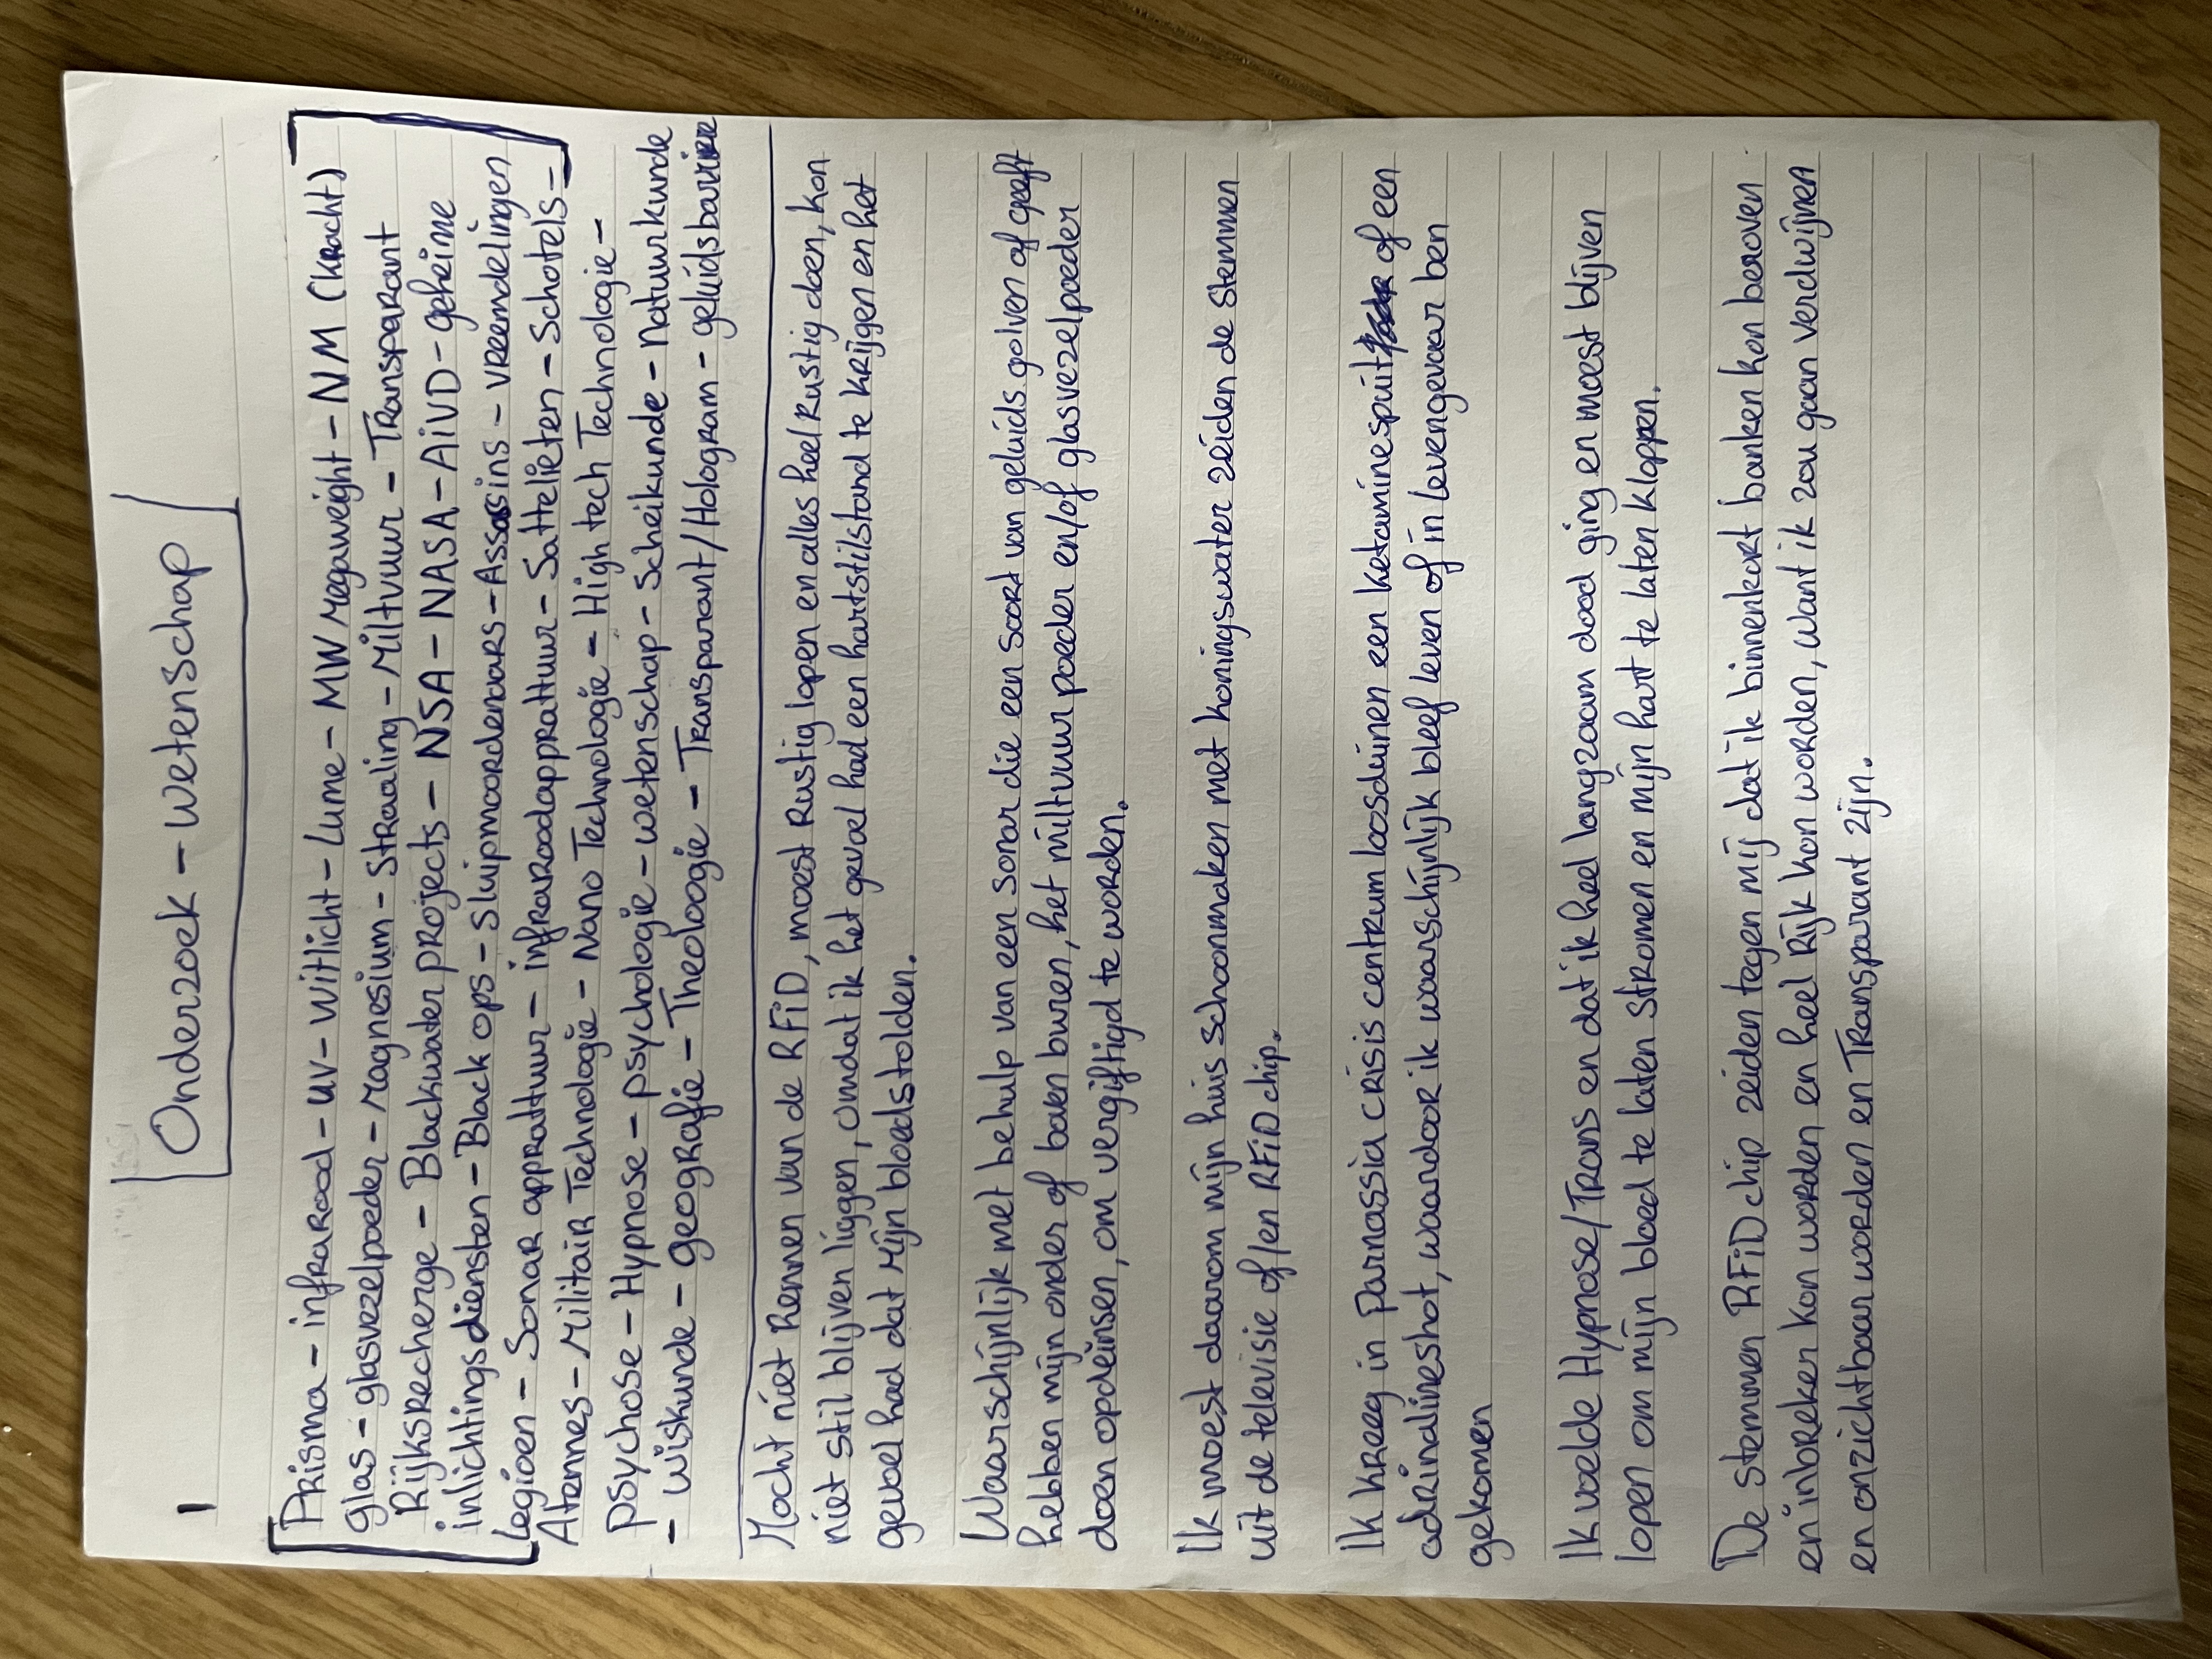 1
Onderzoek - Wetenschap
Prisma - infrarood - UV - Witlicht - Lume - MW Megaweight - NM (kracht)
glas - glasvezelpoeder - Magnesium - Straaling - Miltvuur - Transparant
Rijksrecherge - Blackwater projects - NSA - NASA - AiVD - geheime
inlichtingsdiensten - Black ops - Sluipmoordenaars - Assassins - vreemdelingen
Legioen - Sonar apprattuur - infraroodapprattuur - Sattelieten - Schotels -
Atennes - Militair Technologie - Nano Technologie - High tech Technologie -
psychose - Hypnose - psychologie - wetenschap - Scheikunde - Natuurkunde
- Wiskunde - geografie - Theologie - Transparant/Hologram - geluidsbarrière
Mocht niet Rennen van de RFiD, moest Rustig lopen en alles heel Rustig doen, kon
niet stil blijven liggen, omdat ik het gevoel had een hartstilstand te krijgen en het
gevoel had dat mijn bloedstolden.
Waarschijnlijk met behulp van een sonar die een soort van geluids golven af geeft
hebben mijn onder of boven buren, het miltvuur poeder en/of glasvezelpoeder
doen opdeinsen, om vergiftigd te worden.
Ik moest daarom mijn huis schoonmaken met koningswater zeiden de Stemmen
uit de televisie of/en RFiD chip.
Ik kreeg in Parnassia crisis centrum loosduinen een ketaminespuit of een
adrinalineshot, waardoor ik waarschijnlijk bleef leven of in levengevaar ben
gekomen
Ik voelde Hypnose/Trans en dat ik heel langzaam dood ging en moest blijven
lopen om mijn bloed te laten stromen en mijn hart te laten kloppen.
De stemmen RFiD chip zeiden tegen mij dat ik binnenkort banken kon beroven
en inbreken kon worden en heel Rijk kon worden, want ik zou gaan verdwijnen
en onzichtbaar worden en Transparant zijn.